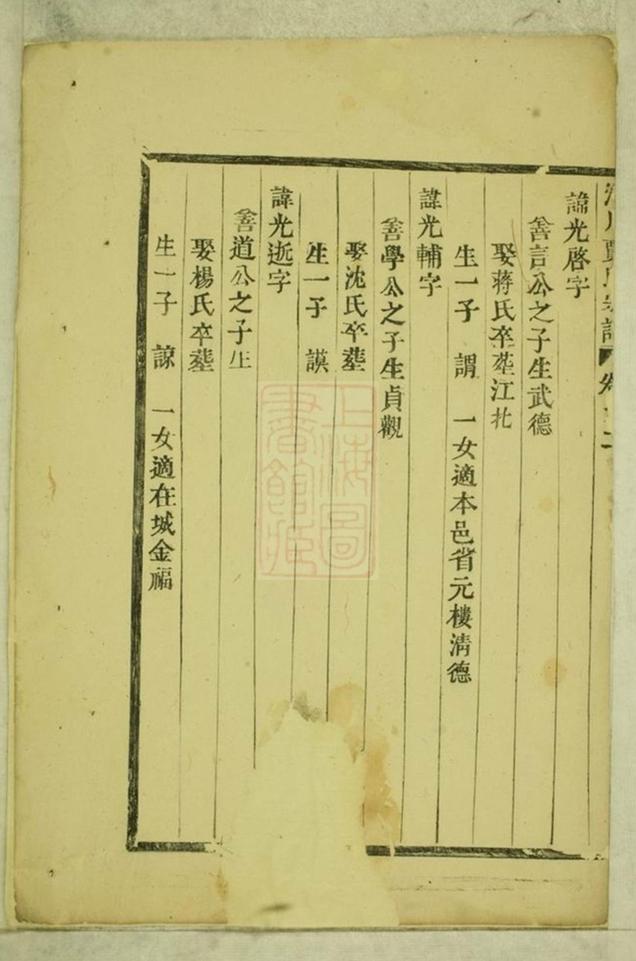 賈氏宗譜 卷
諱光啓字
善言公之子生武德
娶蔣氏卒塟江北
生一子 謂 一女適本邑省元樓清德
諱光輔字
善學公之子生貞觀
娶沈氏卒塟
生一子 謨
諱光逝字
善道公之子生
娶楊氏卒塟
生一子 諒 一女適在城金福
上海圖書館藏